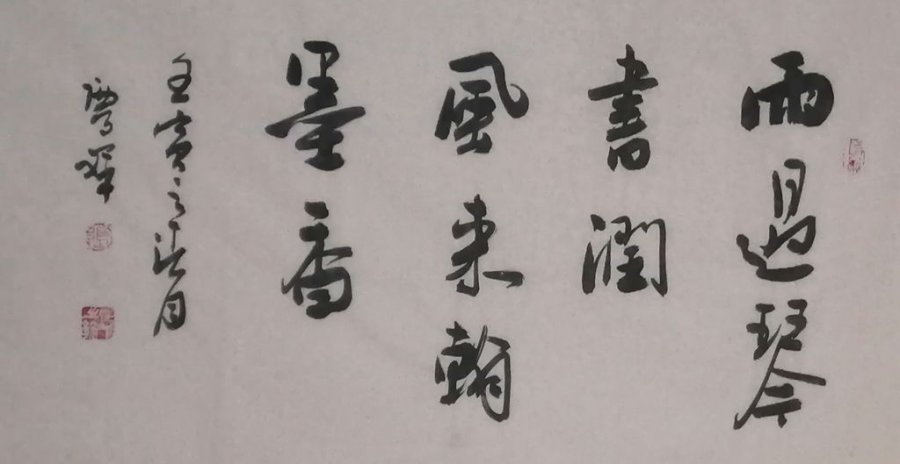 雨過琴
書潤
風来翰
墨香
壬寅之 月